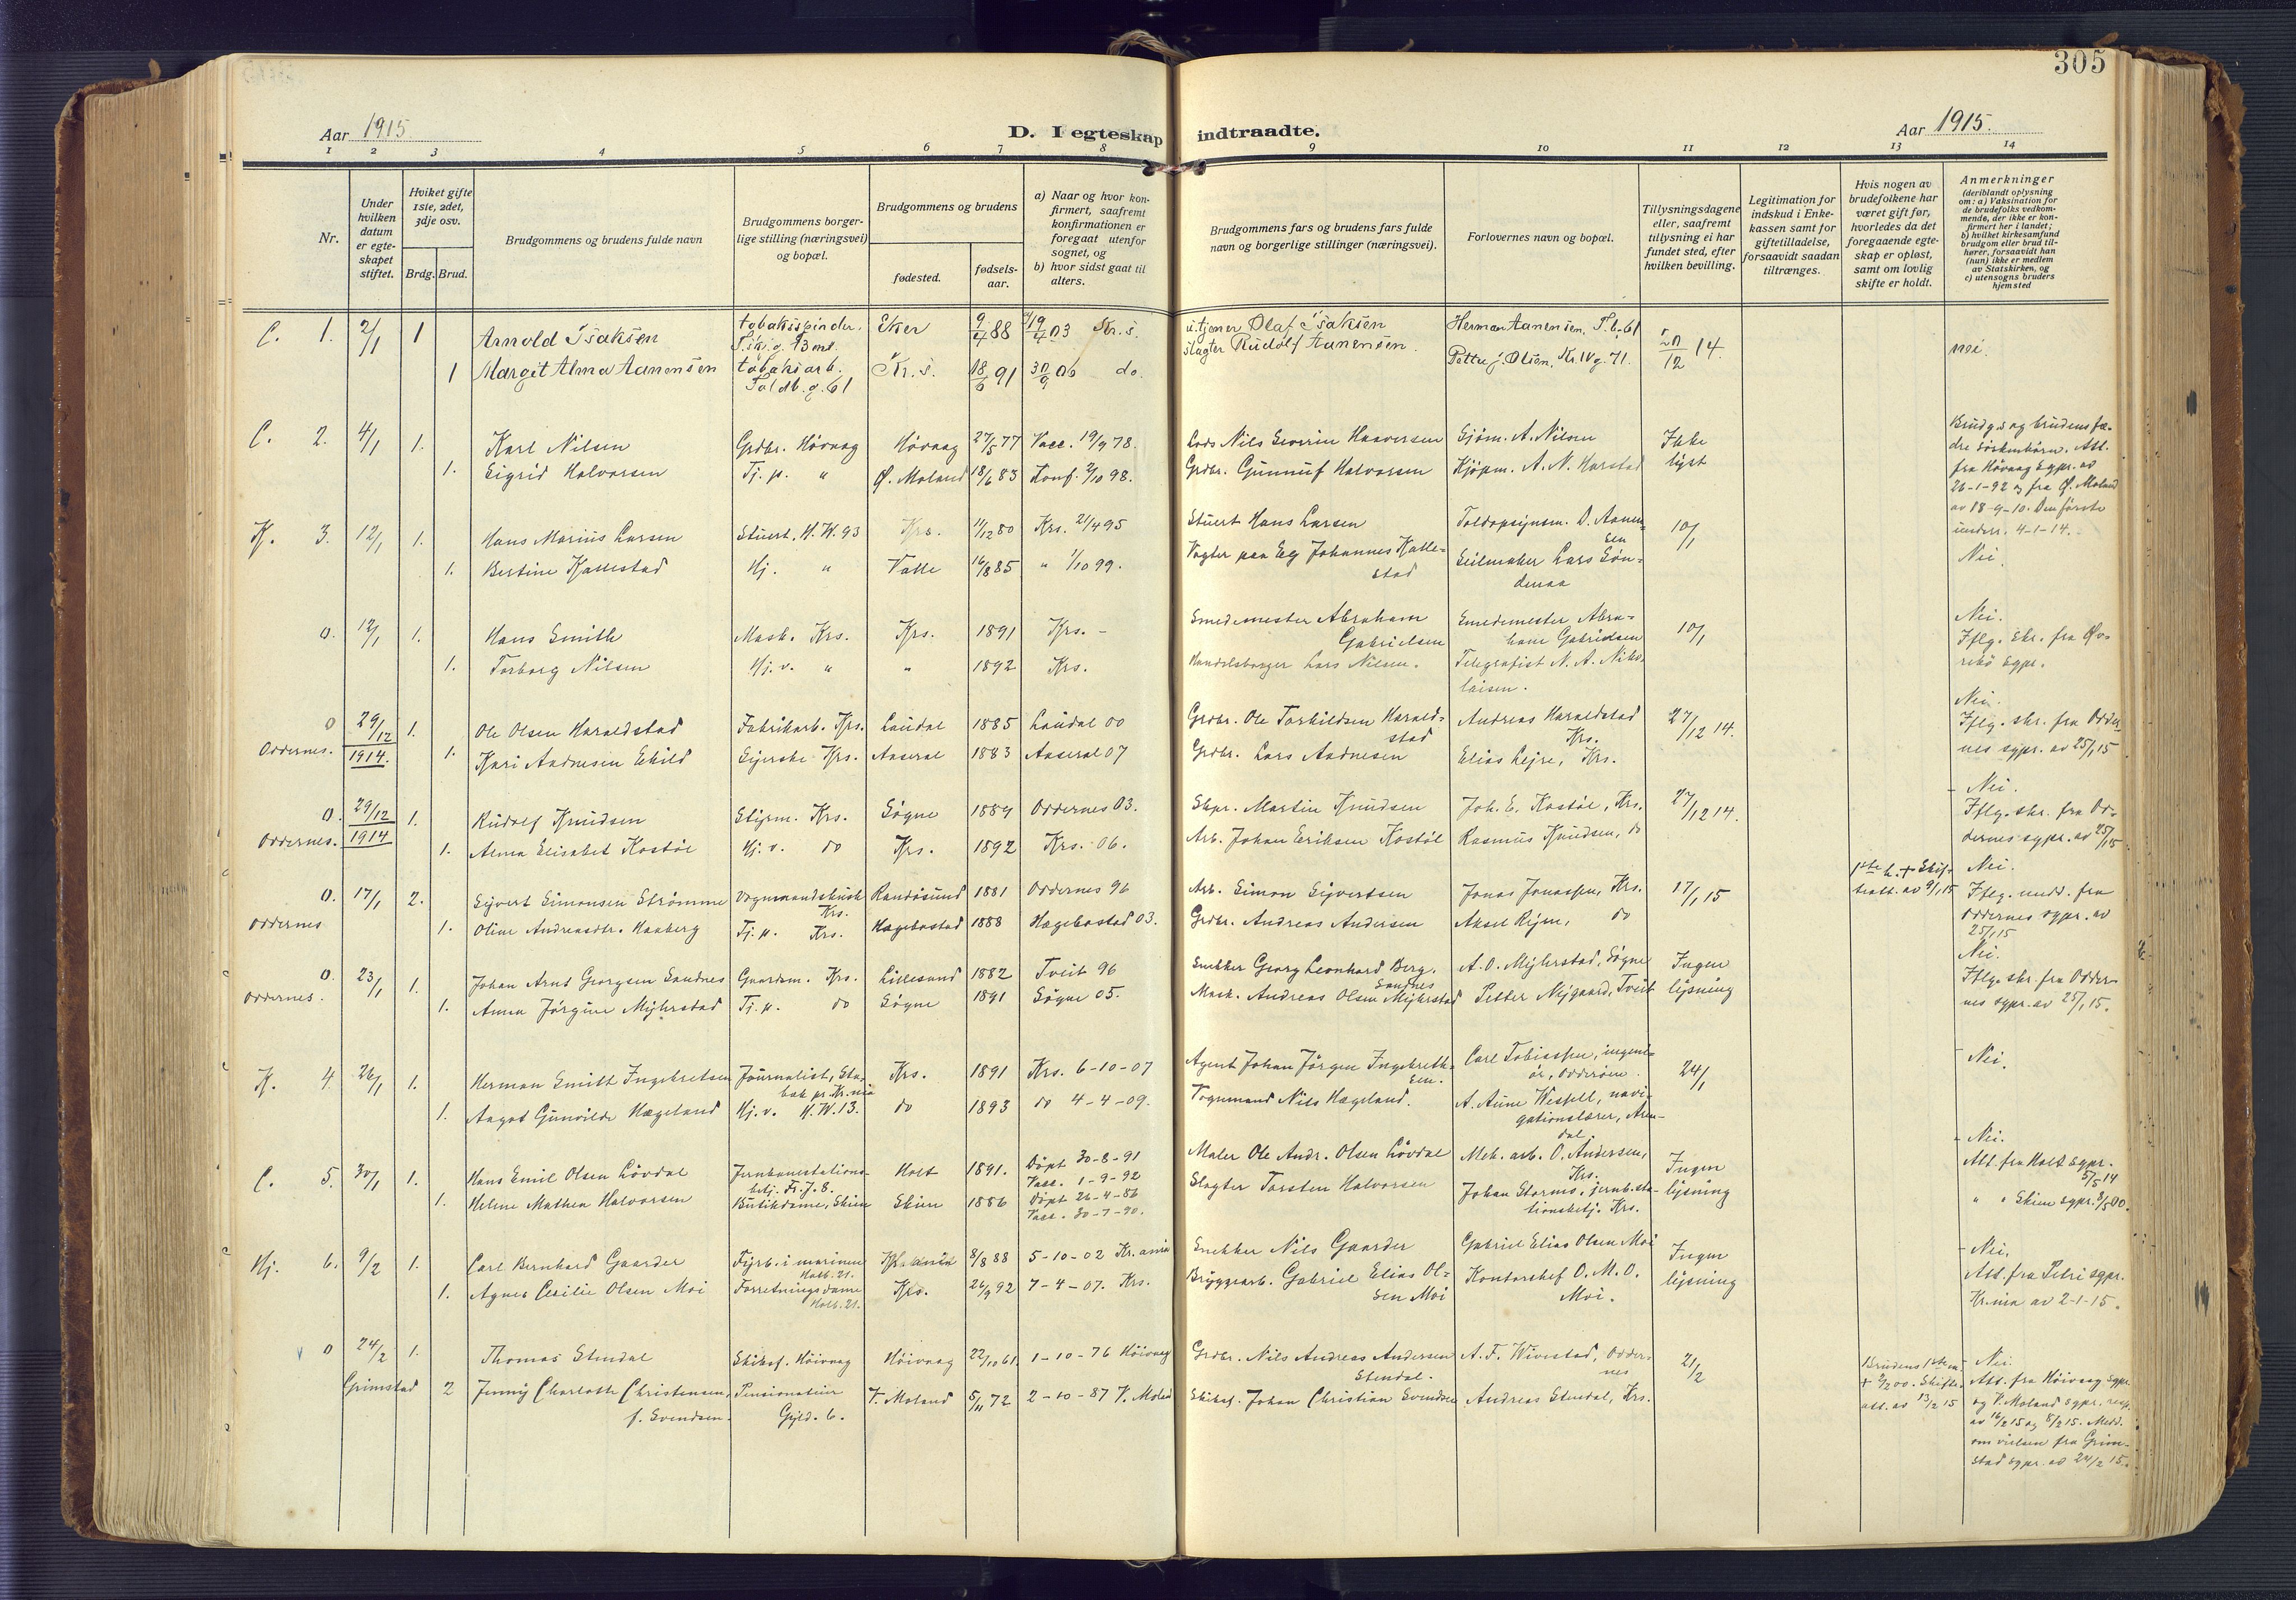 305
Aar 1915.
D. I egteskap indtraadte.
Aar 1915.
1 2 3 4 5 6 7 8 9 10 11 12 13 14
Nr.
Under hvilken datum er egte-skapet stiftet.
Hviket gifte 1ste, 2det, 3dje osv.
Brdg. Brud.
Brudgommens og brudens fulde navn
Brudgommens borger-lige stilling (næringsvei) og bopæl.
Brudgommens og brudens
fødested.
fødsels-aar.
a) Naar og hvor kon-firmert, saafremt konfirmationen er foregaat utenfor sognet, og
b) hvor sidst gaat til alters.
Brudgommens fars og brudens fars fulde navn og borgerlige stillinger (næringsvei).
Forlovernes navn og bopæl.
Tillysningsdagene eller, saafremt tillysning ei har fundet sted, efter hvilken bevilling.
Legitimation for indskud i Enke-kassen samt for giftetilladelse, forsaavidt saadan tiltrænges.
Hvis nogen av brudefolkene har været gift før, hvorledes da det foregaaende egte-skap er opløst, samt om lovlig skifte er holdt.
Anmerkninger
(deriblandt oplysning om: a) Vaksination for de brudefolks vedkom-mende, der ikke er kon-firmert her i landet; b) hvilket kirkesamfund brudgom eller brud til-hører, forsaavidt han (hun) ikke er medlem av Statskirken, og c) utensogns bruders hjemsted
C. 1. 2/1 1 Arnold Isaksen tobaksspinder. Eker 9/4 88 19/4 03 Kr.s. Olaf Isaksen Herman Aanensen, T.b. 61 20/12 14. nei.
1 Margit Alma Aanensen tobaksarb. Toldb.g. 61 Kr.s. 18/6 91 30/9 06 do. slagter Rudolf Aanensen. Petter j. Olsen, Kr.IVg. 71.
C. 2. 4/1 1. Karl Nilsen Grdbr. Høvaag Høvaag 27/5 77 Vacc. 19/9 78. Lods Nils Severin Haaversen Sjøm. A. Nilsen Ikke lyst Brudg.s og brudens fæ-
1. Sigrid Halvorsen Tj. p. " Ø. Moland 18/6 83 Konf. 2/10 98. Grdbr. Gunnuf Halvorsen Kjøpm. A. N. Harstad
dre søskenbørn. Att.
fra Høvaag sypr. av
26-1-92 og fra Ø. Moland
av 18-9-10. Den første
underr. 4-1-14.
K. 3. 12/1 1. Hans Marius Larsen Stuert, H.W. 93 Krs. 11/12 80 Krs. 21/4 95 Stuert Hans Larsen Toldopsynsm. D. Aanensen 10/1
1. Bertine Kallestad Hj. " Valle 16/8 85 " 1/10 99. Vagter paa Eg Johannes Kallestad Seilmaker Lars Søndenaa Nei.
0. 12/1 1. Hans Smith Mask. Krs. Krs. 1891 Krs. - Smedemester Abraham Gabrielsen Smedemester Abraham Gabrielsen 10/1 Nei.
1. Torborg Nilsen Hj. v. " " 1892 Krs. Handelsborger Lars Nilsen. Telegrafist N. A. Nikolaisen.
Iflg. skr. fra Øvrebø sypr.
0 Oddernes. 29/12 1914. 1. Ole Olsen Haraldstad Fabrikarb. Krs. Laudal 1885 Laudal 00 Grdbr. Ole Torkildsen Haraldstad Andreas Haraldstad Krs. 27/12 14. Nei.
1. Kari Aadnesen Ekild Syerske Krs. Aaseral 1883 Aaseral 07 Grdbr. Lars Aadnesen Elias Lejre, Krs.
Iflg. skr. fra Oddernes sypr. av 25/1 15
0. Oddernes. 29/12 1914 1. Rudolf Knudsen Styrm. Krs. Søgne 1889 Oddernes 03. Skpr. Martin Knudsen Joh. E. Kostøl, Krs. 27/12 14. Nei.
1. Anna Elisabet Kostøl Hj. v. do Krs. 1892 Krs. 06. Arb. Johan Eriksen Kostøl Rasmus Knudsen, do
Iflg. skr. fra Oddernes sypr. av 25/1 15
0. Oddernes 17/1 2. Syvert Simonsen Strømme Vognmandskusk Krs. Randøsund 1881 Oddernes 96 Arb. Simon Syvertsen Jonas Jonassen, Krs. 17/1 15 1ste h. + Skifteatt. av 9/1 15 Nei.
1. Oline Andreasdtr. Haaberg Tj. p. Krs. Hægebostad 1888 Hægebostad 03. Grdbr. Andreas Andersen Aksel Rejen, do
Iflg. medd. fra Oddernes sypr. av 25/1 15
0. Oddernes. 23/1 1. Johan Arnt Georgsen Sandnes Gaardsm. Krs. Lillesand 1882 Tveit 96 Snekker Georg Leonhard Berg. Sandnes A. O. Myhrstad, Søgne Ingen lysning Nei.
1. Anna Jørgine Myhrstad Tj. p. do Søgne 1891 Søgne 05. Mask. Andreas Olsen Myhrstad Petter Nygaard, Tveit
Iflg. skr. fra Oddernes sypr. av 25/1 15.
K. 4. 26/1 1. Herman Smitt Ingebretsen Journalist, Stabæk pr. Kr.nia Krs. 1891 Krs. 6-10-07 Agent Johan Jørgen Ingebrethsen. Carl Tobiassen, ingeniør, Odderøen. 24/1 Nei.
1. Aagot Gunvilde Hægeland Hj. v. H.W. 13. do 1893 do 4-4-09. Vognmand Nils Hægeland. A. Aune Wessell, navigationslærer, Arendal.
C. 5. 30/1 1. Hans Emil Olsen Løvdal Jernbanestationsbetj. Fr. J. 8. Holt 1891. Døpt 30-8-91 Vacc. 1-9-92 Maler Ole Andr. Olsen Løvdal Mek. arb. O. Andersen, Krs. Ingen lysning Nei.
1. Helene Mathea Halvorsen Butikdame, Skien Skien 1886 Døpt 26-4-86 Vacc. 30-7-90. Slagter Torsten Halvorsen Johan Storms, jernb.stationsbetj. Krs.
Att. fra Holt sypr. 5/5 14
" " Skien sypr. 3/5 00.
Hj. 6. 9/2 1. Carl Bernhard Gaarder Fyrb. i marinen Holb. 21. 8/8 88 5-10-02 Kr.ania Snekker Nils Gaarder Gabriel Elias Olsen Moi Ingen lysning Nei.
1. Agnes Cecilie Olsen Moi Forretningsdame Holb. 21. Krs. 26/9 92 7-4-07. Krs. Bryggearb. Gabriel Elias Olsen Moi Kontorchef O. M. O. Moi.
Att. fra Petri sypr. Kr.nia av 2-1-15.
0 24/2 1. Thomas Stendal Skibsf. Høivaag Høivaag 22/10 61 1-10-76 Høivaag Grdbr. Nils Andreas Andersen Stendal. A. F. Wivestad, Oddernes 21/2 Brudens 1ste m. + 2/2 00. Skifteatt. av 13/2 15 Nei.
Grimstad 2 Jenny Charlotte Christensen f. Svendsen. Pensionateier Gyld. 6. V. Moland 5/11 72 2-10-87 V. Moland Skibsf. Johan Christian Svendsen Andreas Stendal, Krs.
Att. fra Høivaag sypr.
og V. Moland sypr., resp.
av 16/2 15 og 8/2 15. Medd.
om vielsen fra Grim-
stad sypr. av 24/2 15.